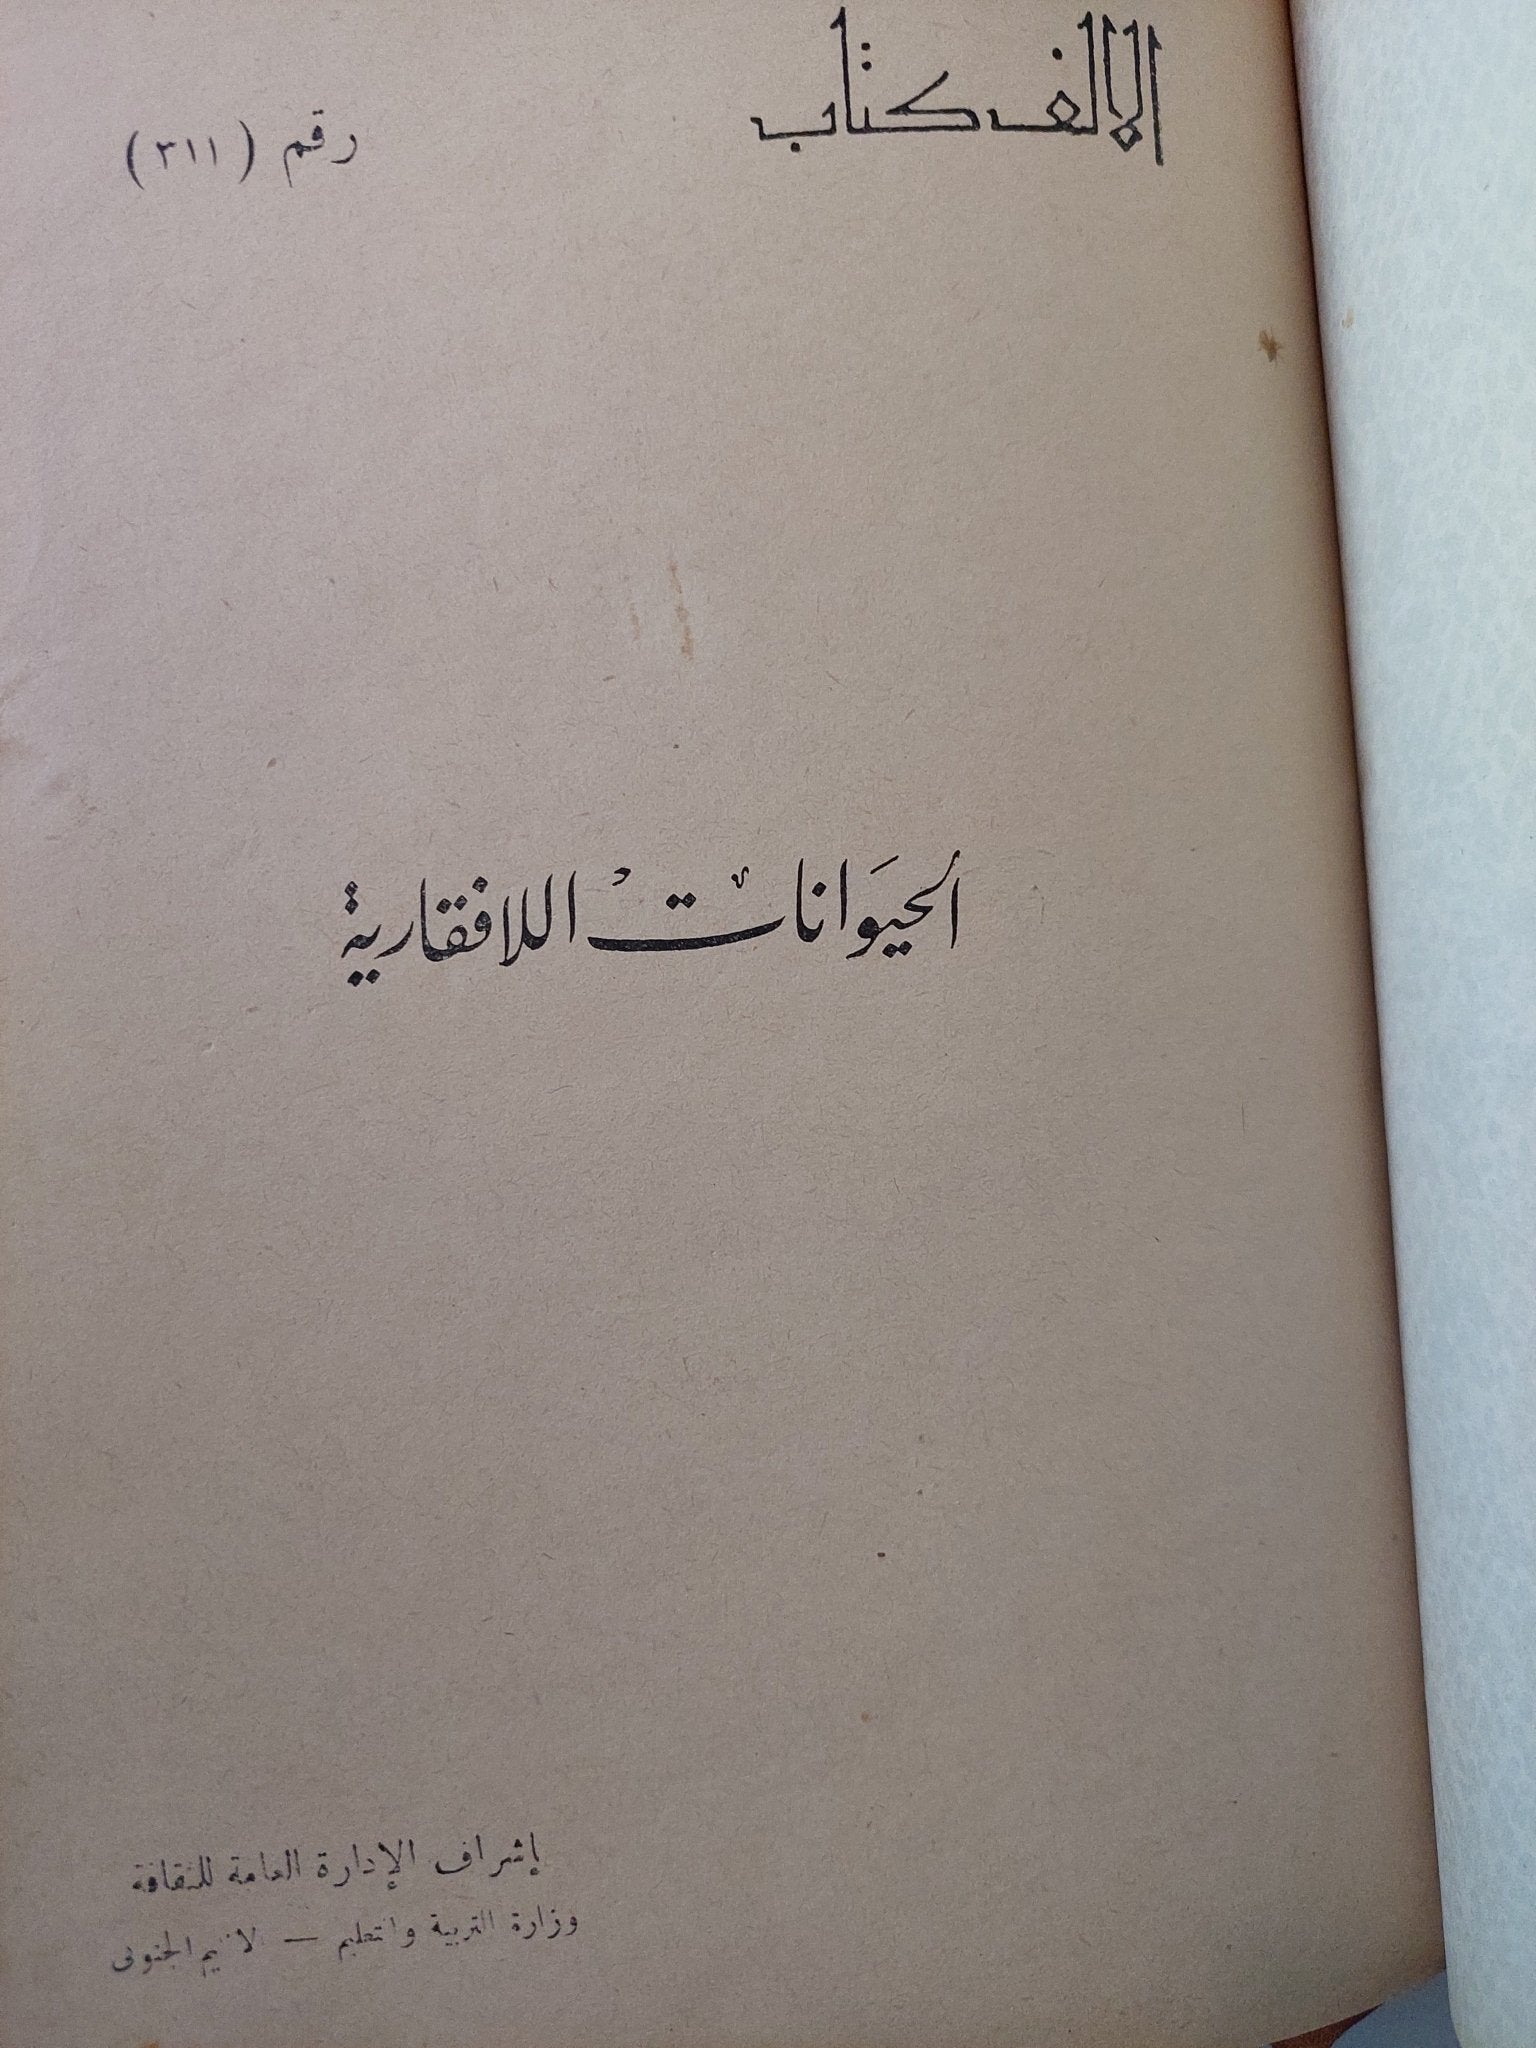 الالف كتاب
رقم (٣١١)
الحيَوانات اللافقارية
إشراف الإدارة العامة للثقافة
وزارة التربية والتعليم — الإقليم الجنوبى